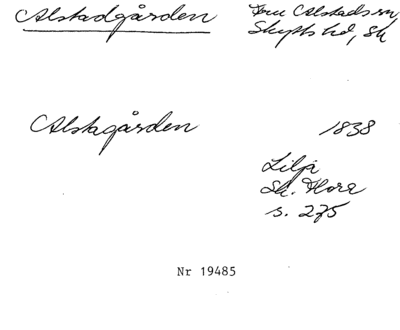 Alstadgården
Fru Alstads sn,
Skytts hd, Sk
Alstagården
1838
Lilja
Sk. Flora
s. 275
Nr 19485